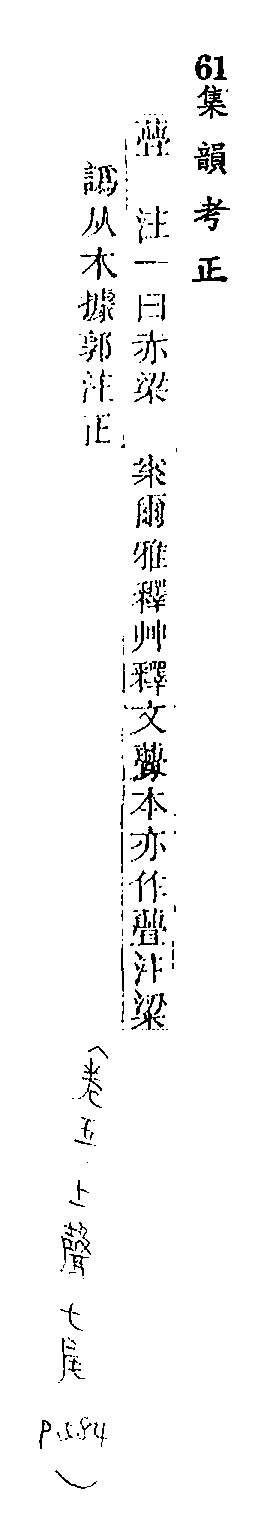 61集韻考正
虋 注一曰赤粱 案爾雅釋艸釋文虋本亦作亹注粱
譌从木據郭注正
(卷五 上聲 七尾 P.584)